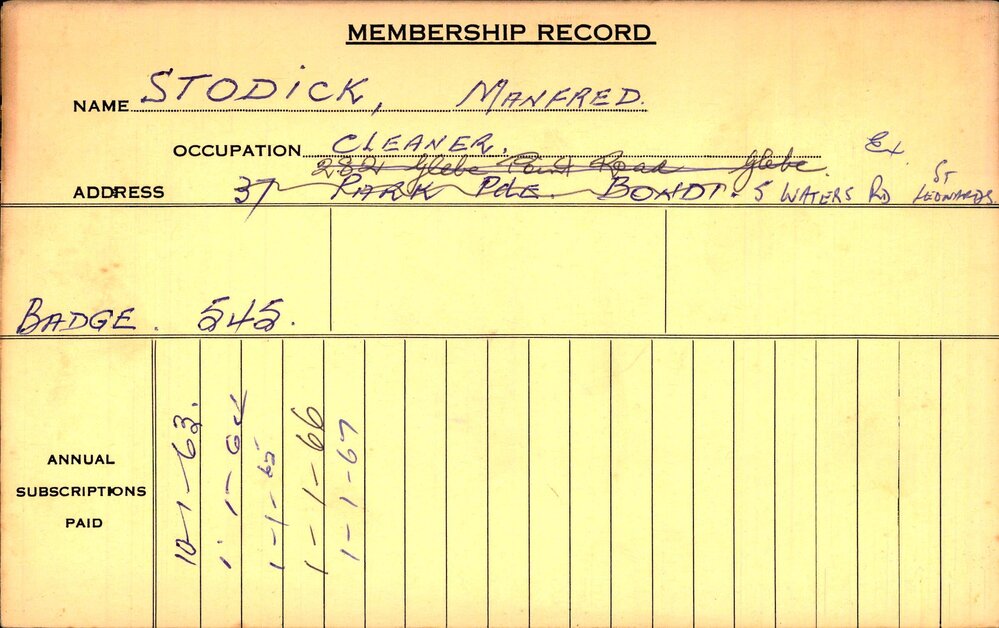 MEMBERSHIP RECORD
NAME STODICK, MANFRED.
OCCUPATION CLEANER. Ex
282 Glebe Point Road Glebe.
ADDRESS 37 PARK Pde. BONDI. 5 WATERS RD ST LEONARDS
BADGE. 545.
ANNUAL SUBSCRIPTIONS PAID
10-1-63.
1-1-64
1-1-65
1-1-66
1-1-67